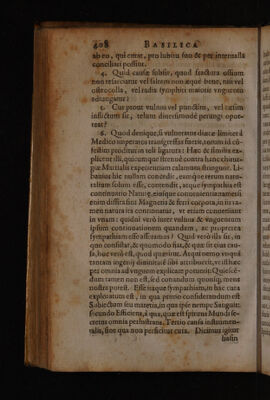 408 BASILICA
ab eo, qui curat, pro lubitu suo & per internalla
conciliari possint.
4. Quid causæ subsit, quod fractura ossium
non resarciatur vel saltem non æquè bene, nisi vel
osteocolla, vel radix symphiti maioris vnguento
adiungatur?
5. Cur prout vulnus vel punctim, vel cæsim
inflictum sit, telum diuersimodè perungi opor-
teat?
6. Quod denique, si vulneratus diætæ limites à
Medico imperatos transgressus fuerit, notam id
festim proditurum teli sudor? Hæc &
plicent illi, quicumque strenuè contra hanc chirur-
giæ Martialis experientiam calamum stringunt. Li-
benter hîc nullam concedit, eamque rerum natu-
ralium solum esse, contendit, atque sympathia est
continuatio Naturæ, eiusque conuenientia: tametsi
enim dissita sint Magneris & ferri corpora, in iis ta-
men natura ita continuatur, vt etiam conuertantur
in vnum: quidni verò inter vulnus & vnguentum
ipsum continuationem quandam, ac propterea
sympathiam esse asseramus? Quid verò illa sit, in
quo consistat, & quomodo fiat, & quæ sit eius cau-
sa, hoc verò est, quod quæritur. Atqui nemo vnquã
tantam ingenij diuinitatẽ sibi attribuerit, vt is hæc
per omnia ad vnguem explicari potuerit: Quiescẽ-
dum tamen non est, sed conandum quousq; mens
nostra id poterit. Esse itaque sympathiam, in hac cura
exploratum est, in qua primò considerandum est
Subiectum seu materia, in qua ipse nempe Sanguis:
secundo Efficiens, à qua, quæ est spiritus Mundi se-
cretus omnia perlustrans. Tertiò causa instrumen-
talis, sine qua non perficitur cura. Dicimus igitur
basin